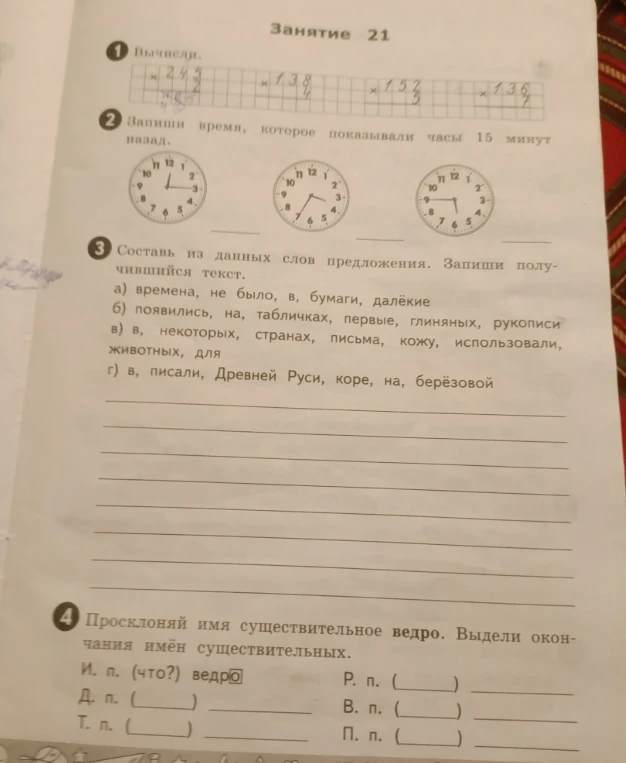 Занятие 21
1 Вычисли.
× 245 × 138 × 152 × 136
2 4 5 7
2 Запиши время, которое показывали часы 15 минут
назад.
11 12 1 11 12 1 11 12 1
10 2 10 2 10 2
9 3 9 3 9 3
8 4 8 4 8 4
7 6 5 7 6 5 7 6 5
3 Составь из данных слов предложения. Запиши полу-
чившийся текст.
а) времена, не было, в, бумаги, далёкие
б) появились, на, табличках, первые, глиняных, рукописи
в) в, некоторых, странах, письма, кожу, использовали,
животных, для
г) в, писали, Древней Руси, коре, на, берёзовой
4 Просклоняй имя существительное ведро. Выдели окон-
чания имён существительных.
И. п. (что?) ведро Р. п. (______) ________
Д. п. (______) ________ В. п. (______) ________
Т. п. (______) ________ П. п. (______) ________